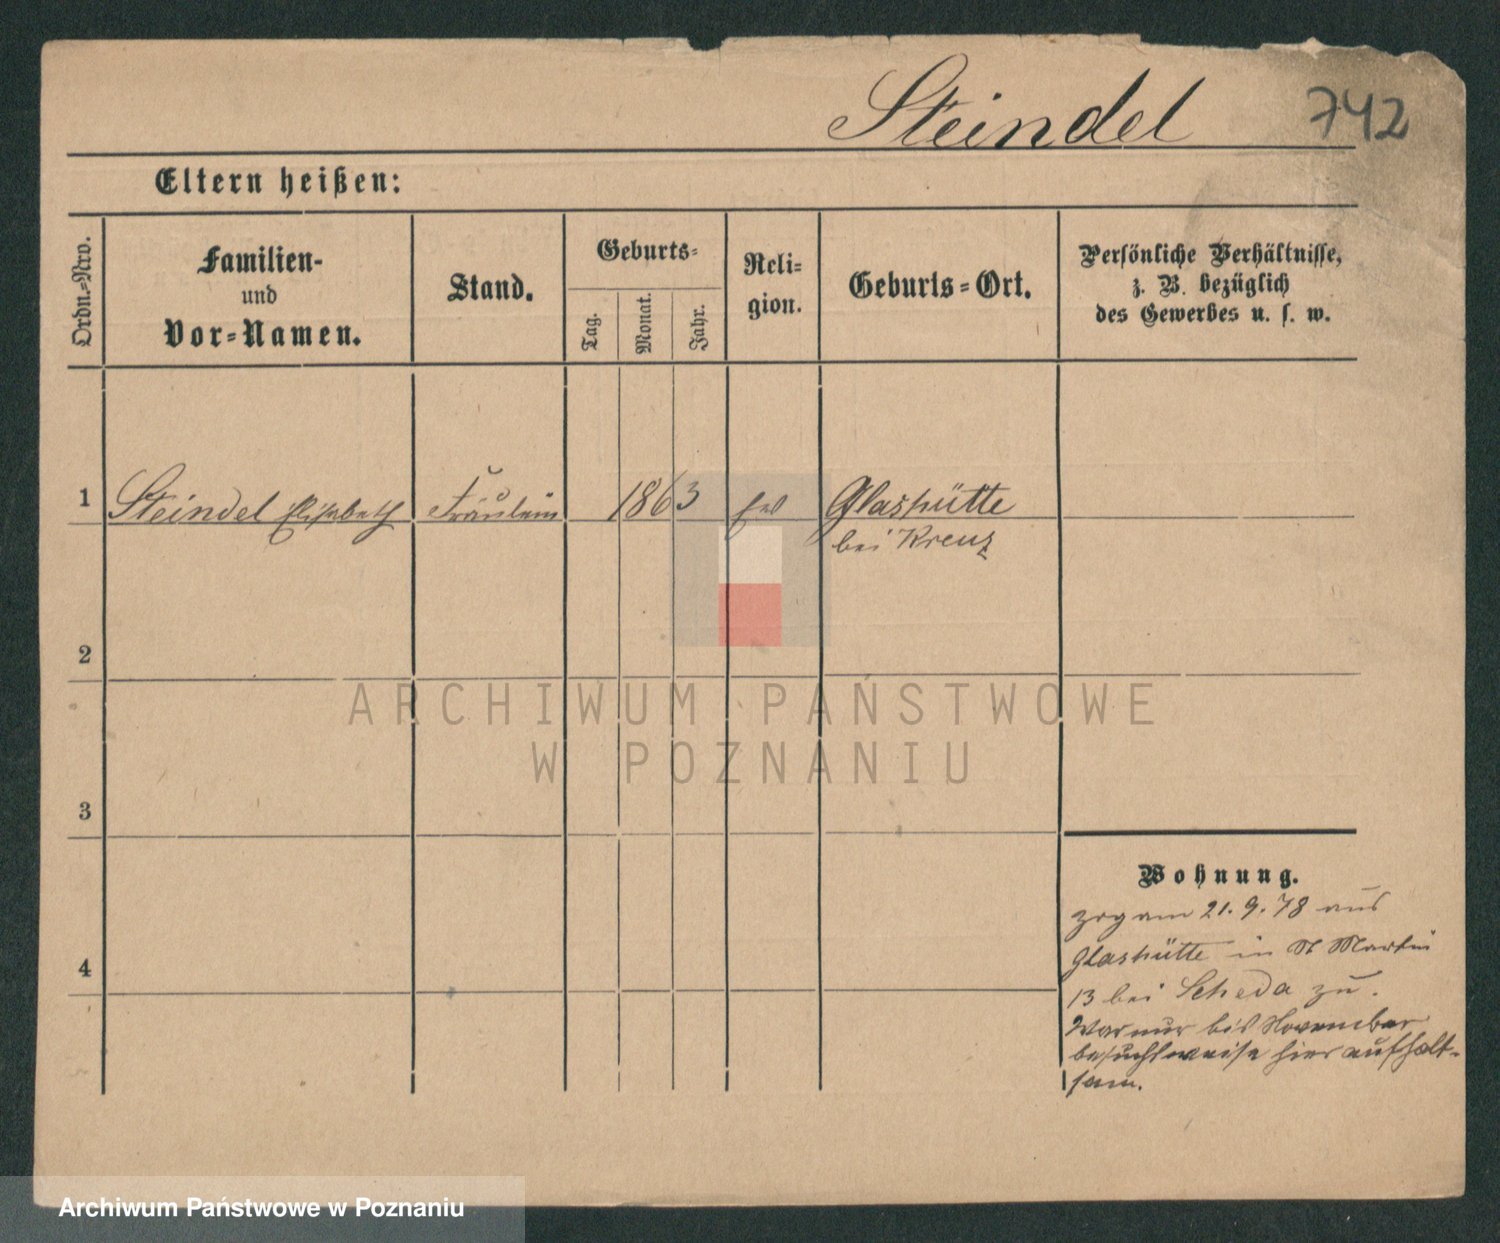 Steindel 742
Eltern heißen:
Ordn.-Nro.
Familien-
und
Vor-Namen.
Stand.
Geburts-
Tag.
Monat.
Jahr.
Reli-
gion.
Geburts-Ort.
Persönliche Verhältnisse,
z. B. bezüglich
des Gewerbes u. s. w.
1 Steindel Elisabeth Fräulein 1863 ev Glashütte
bei Kreuz
2
ARCHIWUM PAŃSTWOWE
W POZNANIU
3
Wohnung.
zog am 21. 9. 78 aus
Glashütte in St Martin
13 bei Scheda zu.
War nur bis November
besuchsweise hier aufhalt-
sam.
4
Archiwum Państwowe w Poznaniu